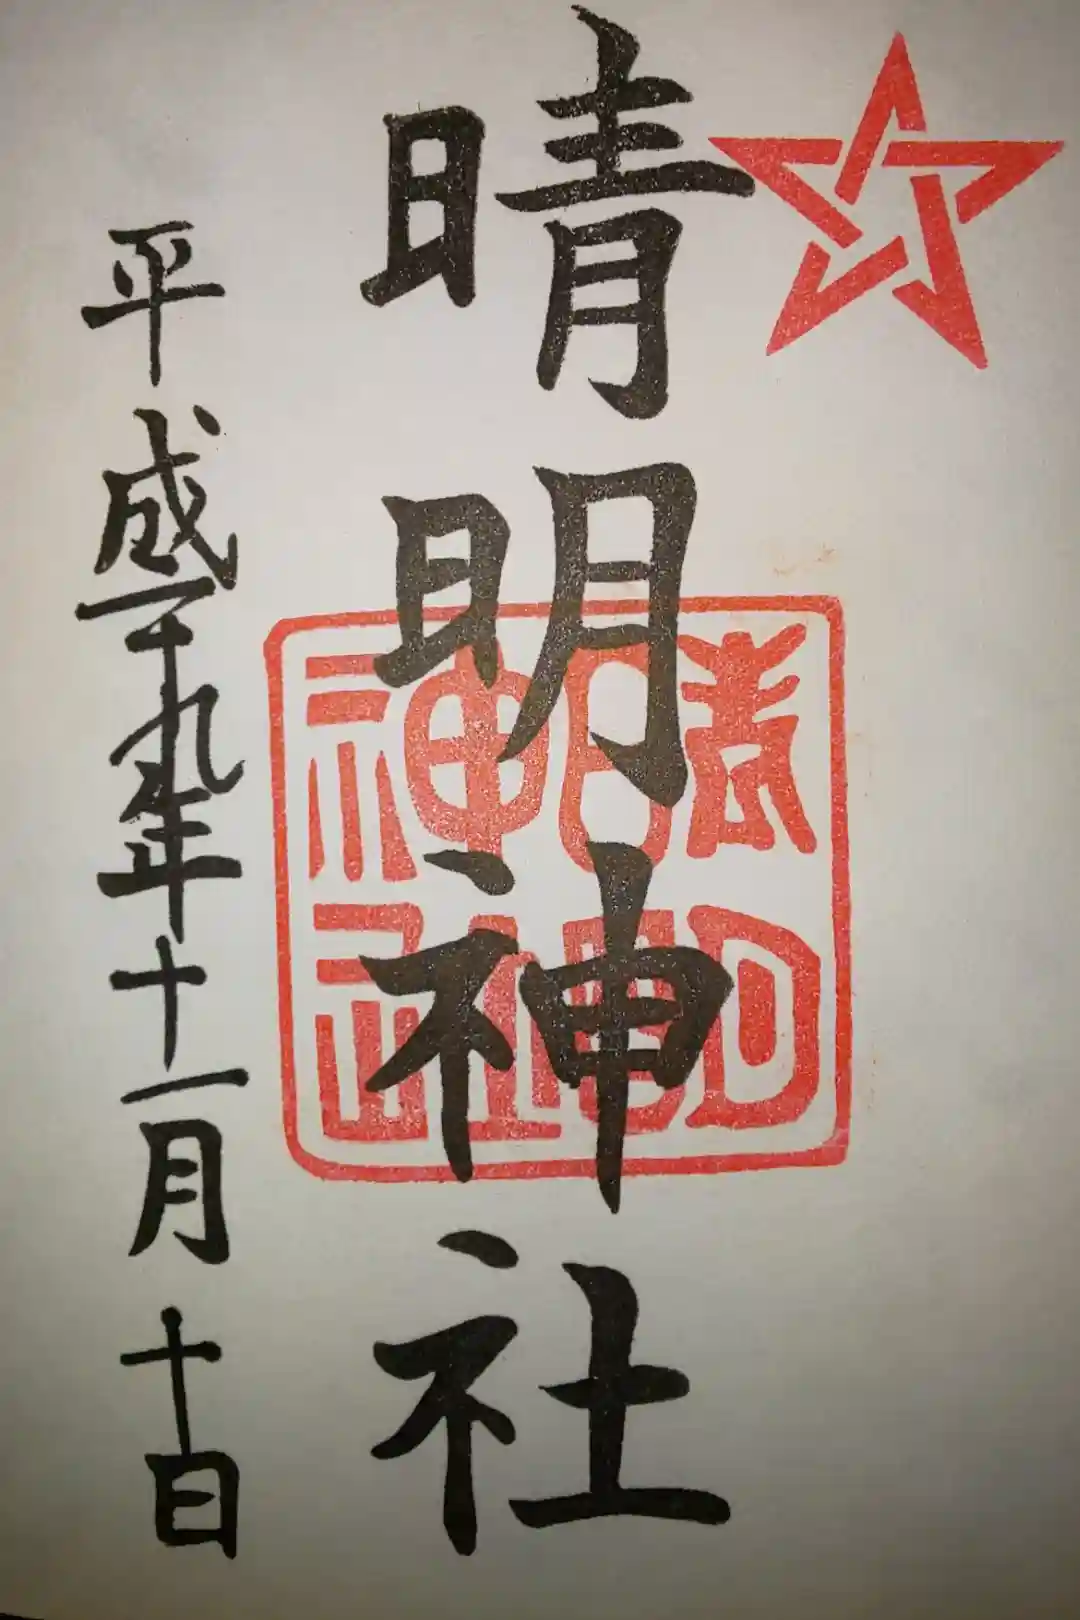 晴明神社
晴明
神社
平成二十九年十一月十日